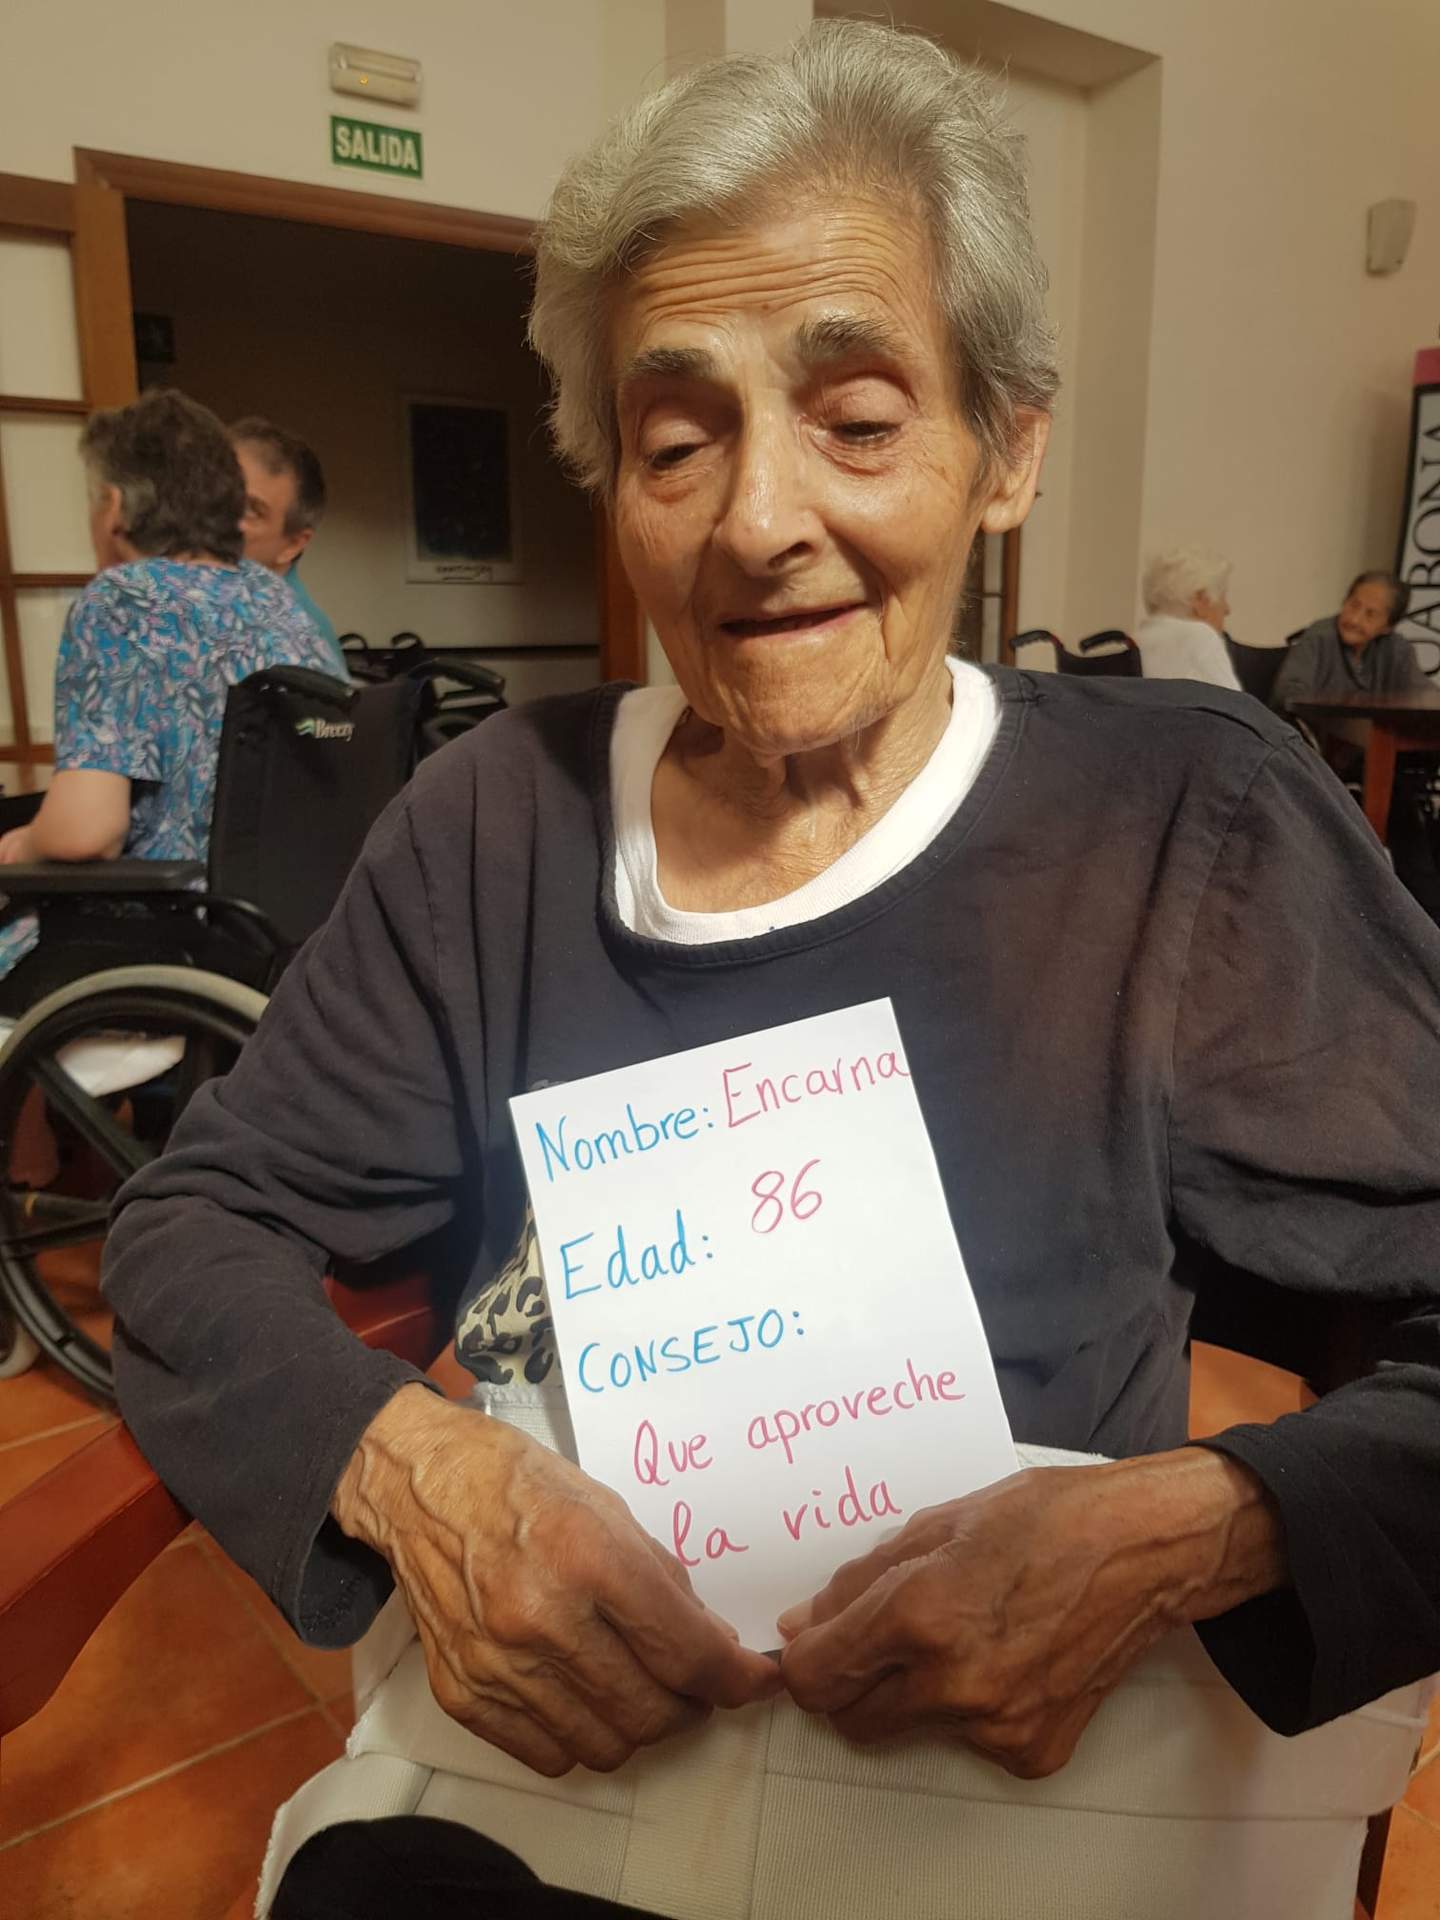 SALIDA
Breezy
CABONA
Nombre: Encarna
Edad: 86
CONSEJO:
Que aproveche
la vida